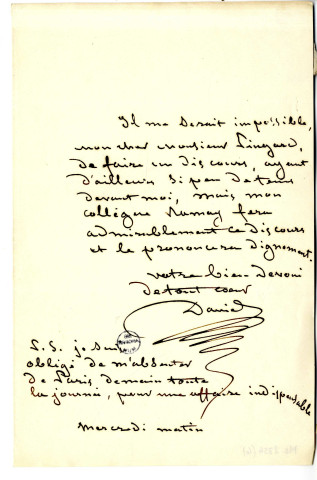 Il me serait impossible,
mon cher monsieur
de faire un discours, ayant
d'ailleurs si peu de tems
devant moi, mais mon
collégue Ramey fera
admirablement ce discours
et le prononcera dignement.
votre bien devoué
de tout coeur
David
P.S. je suis
obligé de m'absenter
de Paris demain toute
la journée, pour une affaire indispensable
Mercredi matin